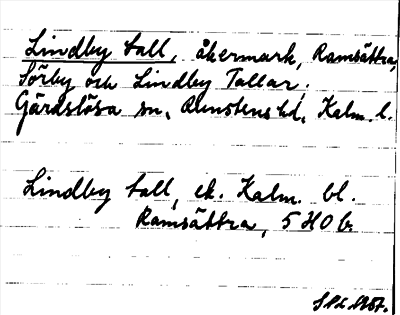 Lindby tall, åkermark, Ramsättra,
Sörby och Lindby Tallar.
Gärdslösa sn, Runstens hd, Kalm. l.
Lindby tall, ek. Kalm. bl.
Ramsättra, 5 H 0 b
1957.